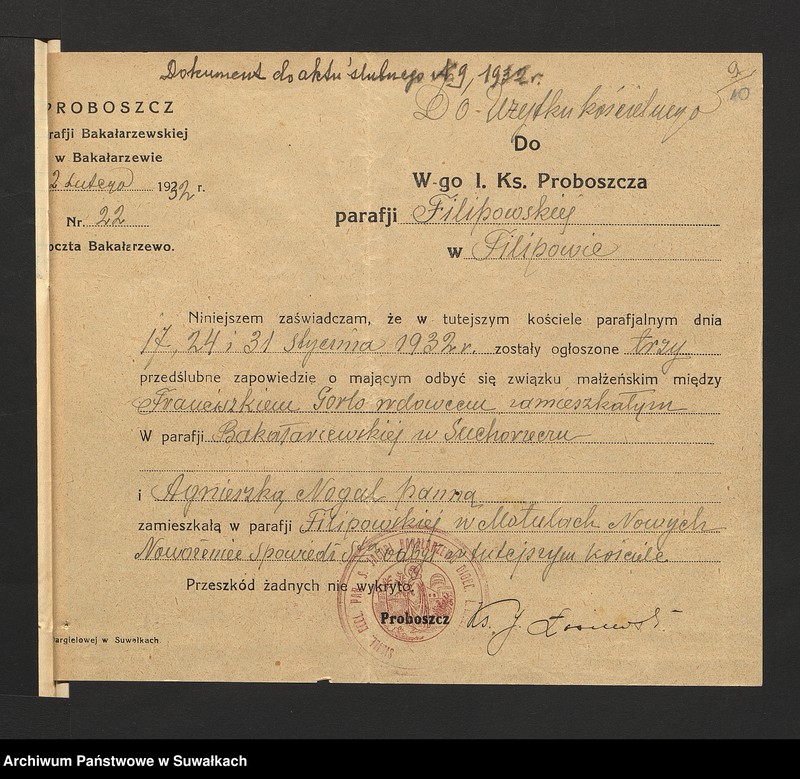 Dokument do aktu ślubnego № 9, 1932 r.
9
10
Do Użytku kościelnego
PROBOSZCZ
rafji Bakałarzewskiej
w Bakałarzewie
2 Lutego 1932 r.
Nr. 22
oczta Bakałarzewo.
Do
W-go I. Ks. Proboszcza
parafji Filipowskiej
w Filipowie
Niniejszem zaświadczam, że w tutejszym kościele parafjalnym dnia
17, 24 i 31 stycznia 1932 r. zostały ogłoszone trzy
przedślubne zapowiedzię o mającym odbyć się związku małżeńskim między
Franciszkiem Gorlo wdowcem zamieszkałym
W parafji Bakałarzewskiej w Suchorzecu
i Agnieszką Nogal panną
zamieszkałą w parafji Filipowskiej w Matulach Nowych
Nowożeniec Spowiedź Ś. odbył w tutejszym kościele
Przeszkód żadnych nie wykryto.
Proboszcz Ks. J.
argielowej w Suwałkach.
Archiwum Państwowe w Suwałkach